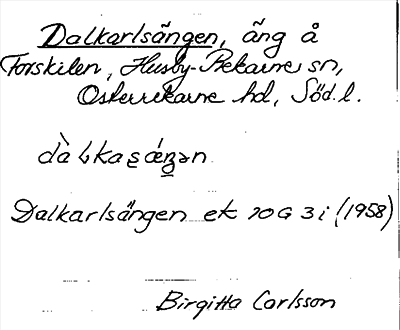 Dalkarlsängen, äng å
Forskilen, Husby-Rekarne sn,
Österrekarne hd, Söd. l.
Dalkarlsängen ek 10 G 3 i (1958)
Birgitta Carlsson